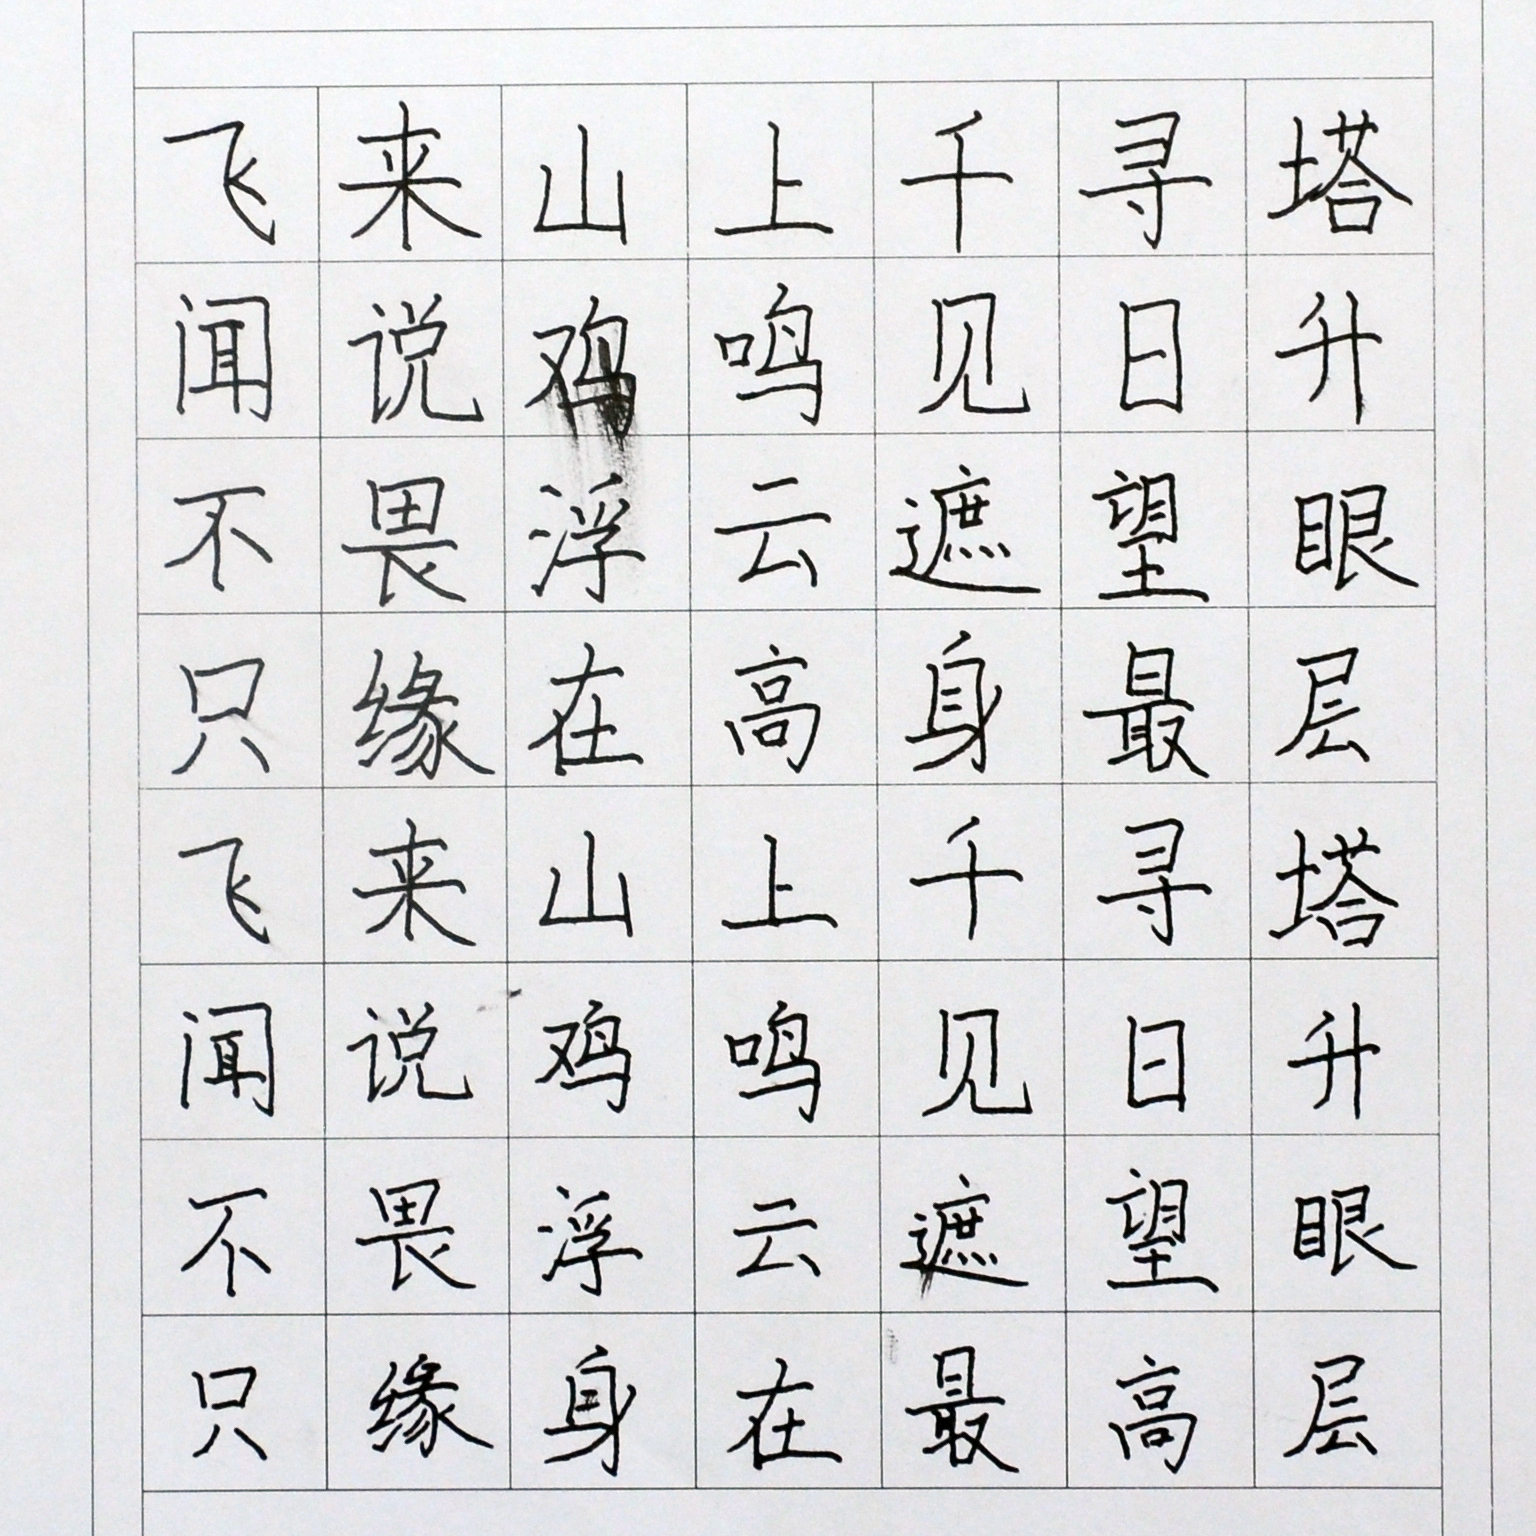 飞来山上千寻塔
闻说鸡鸣见日升
不畏浮云遮望眼
只缘在高身最层
飞来山上千寻塔
闻说鸡鸣见日升
不畏浮云遮望眼
只缘身在最高层